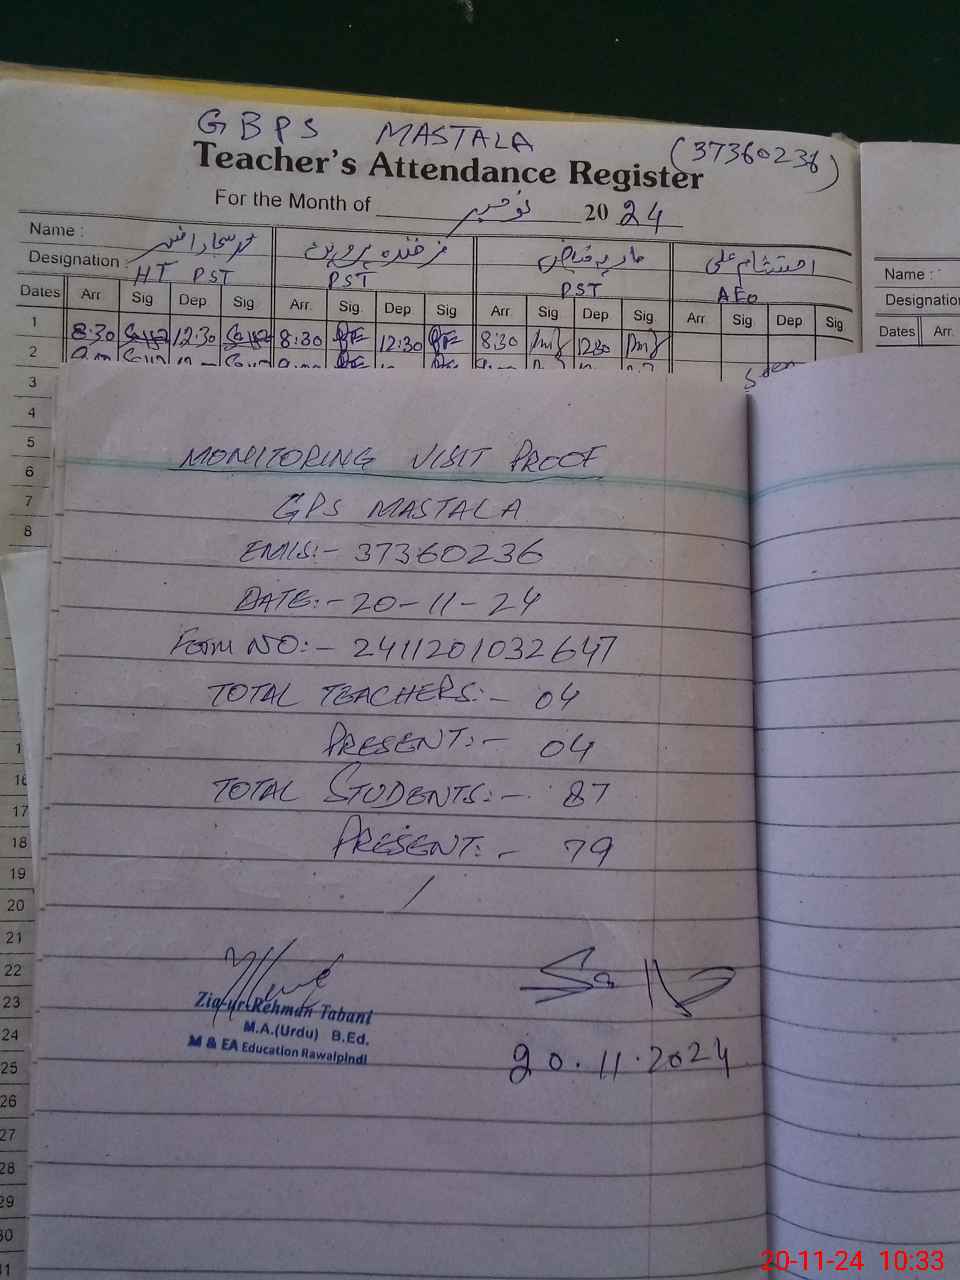 GBPS MASTALA (37360236)
Teacher's Attendance Register
For the Month of نومبر 20 24
Name : فرخندہ پروین ماریہ فیاض احتشام علی
Designation : HT PST PST PST AEO
Dates Arr Sig Dep Sig Arr. Sig. Dep Sig. Arr. Sig Dep Sig. Arr. Sig. Dep Sig
1 8:30 12:30 8:30 12:30 8:30 12:30
2
3
4
5
6
7
8
MONITORING VISIT PROOF
GPS MASTALA
EMIS:- 37360236
DATE:- 20-11-24
Form NO:- 2411201032647
TOTAL TEACHERS:- 04
PRESENT:- 04
TOTAL STUDENTS:- 87
PRESENT:- 79
16
17
18
19
20
21
22
23
24
25
26
27
28
29
30
31
Zia-ur-Rehman Tabani
M.A.(Urdu) B.Ed.
M & EA Education Rawalpindi
20.11.2024
Name :
Designation
Dates Arr.
20-11-24 10:33